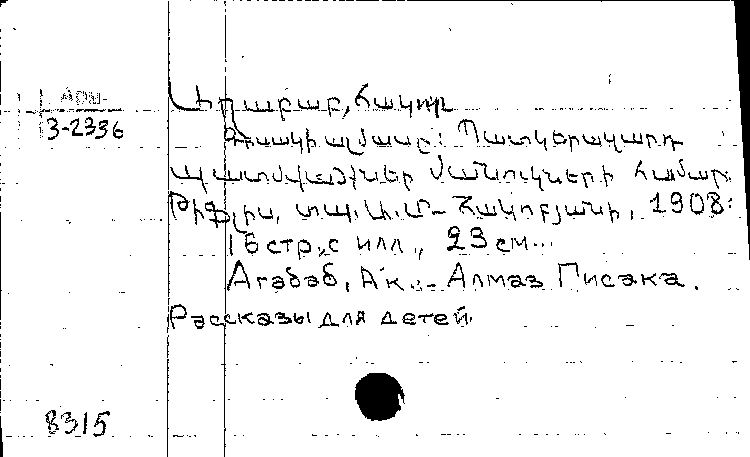 Арм.
3-2336
Աղաբաբ, Հակոբ
Գրակի ալմասը: Պատկերազարդ
պատմվածքներ մանուկների համար.
Թիֆլիս, տպ. Ա.Մ. Հակոբյանի, 1908:
16 стр., с илл., 23 см...
Агабаб, А'к. - Алмаз Писака.
Рассказы для детей.
8315